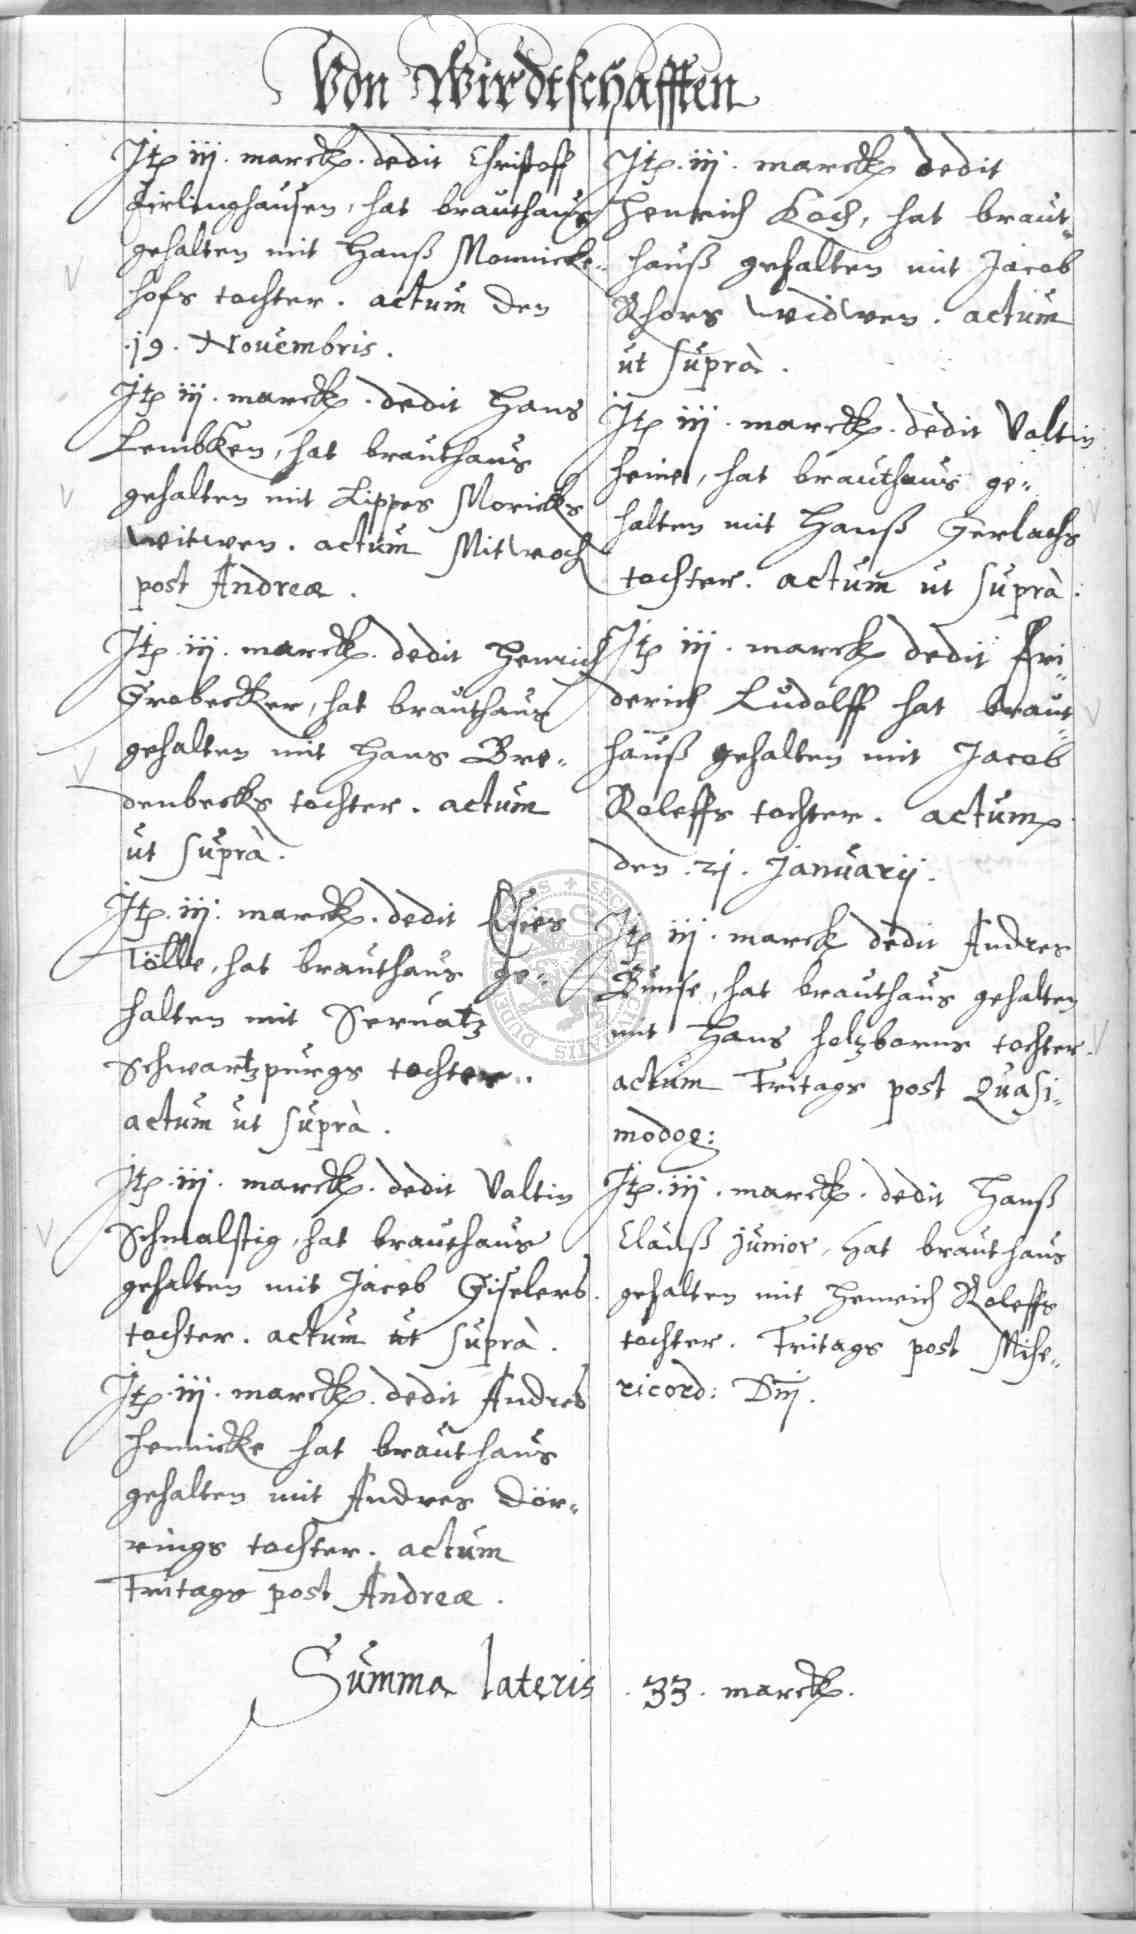 Von Wirdtschafften
Itp iij. marck. dedit Christoff
Girlinghausen, hat brauthaus
gehalten mit Hanß Monnicke-
hofs tochter. actum den
.19. Nouembris.
Itp iij. marck. dedit Hans
LembKen, hat brauthaus
gehalten mit Lippes Moricks
witwen. actum Mitwoch
post Andreæ.
Itp. iij. marck. dedit Henrich
Grobecker, hat brauthaus
gehalten mit Hans Bre-
denbecks tochter. actum
ut suprà.
Itp. iij. marck. dedit
Tölle, hat brauthaus ge-
halten mit Seruatz
Schwartzpurgs tochter.
actum ut suprà.
Itp. iij. marck. dedit Valtin
Schmalstig, hat brauthaus
gehalten mit Jacob Giselers
tochter. actum ut suprà.
Itp. iij. marck. dedit Andres
Hennicke hat brauthaus
gehalten mit Andres Dör-
rings tochter. actum
Fritags post Andreæ.
Itp. iij. marck dedit
Henrich Koch, hat braut-
hauß gehalten mit Jacob
Rhors widwen. actum
ut suprà.
Itp iij. marck. dedit Valtin
Heine, hat brauthaus ge-
halten mit Hanß Gerlachs
tochter. actum ut suprà.
Itp iij. marck dedit Fri-
derich Ludolff hat braut-
hauß gehalten mit Jacob
Roleffs tochter. actum
den .21. Januarij.
Itp iij. marck dedit Andres
Bunse, hat brauthaus gehalten
mit Hans Holzborns tochter.
actum Fritags post Quasi-
modog:
Itp. iij. marck. dedit Hanß
Clauß junior, hat brauthaus
gehalten mit Henrich Roleffs
tochter. Fritags post Mise-
ricord: Dnj.
Summa lateris . 33. marck.